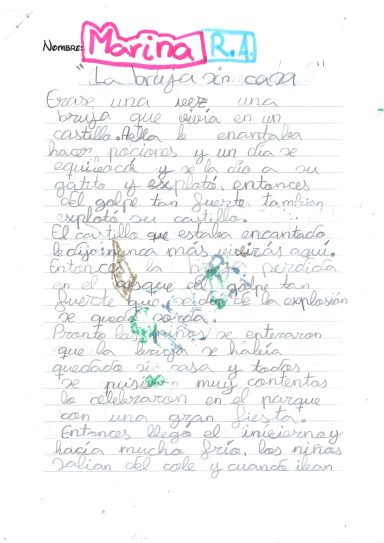 NOMBRE: Marina R.A
"La bruja sin casa"
Erase una vez una
bruja que vivía en un
castillo. A ella le encantaba
hacer pociones y un día se
equivocó y se la dio a su
gatito y explotó, entonces
del golpe tan fuerte tambien
exploto su castillo.
El castillo que estaba encantado
le dijo: nunca más vivirás aquí.
Entonces la perdida
en el bosque del golpe tan
fuerte que se dio de la explosión
se quedó sorda.
Pronto los niños se enteraron
que la bruja se había
quedado sin casa y todos
se muy contentos
lo celebraron en el parque
con una gran fiesta.
Entonces llegó el invierno y
hacía mucho frío, los niños
salían del cole y cuando iban